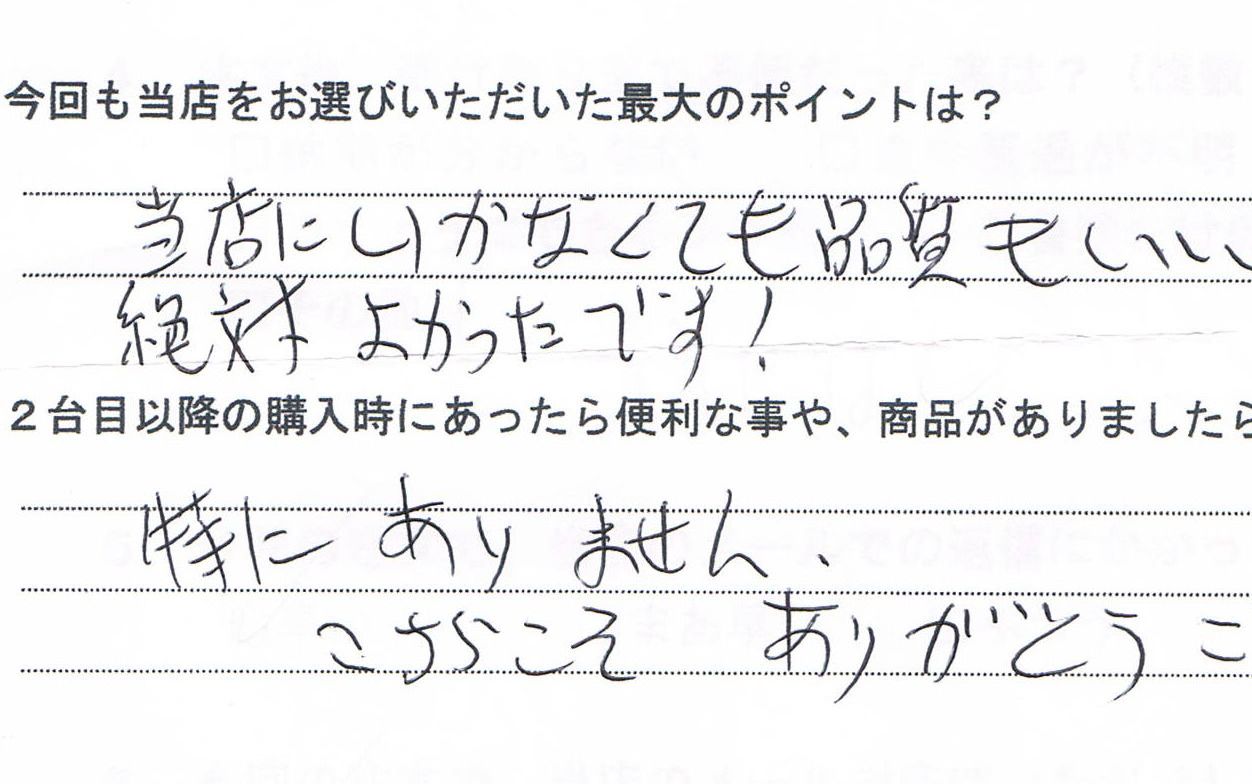 今回も当店をお選びいただいた最大のポイントは？
当店にいかなくても品質もいい
絶対よかったです！
２台目以降の購入時にあったら便利な事や、商品がありましたら
特にありません、
こちらこそ ありがとうこ